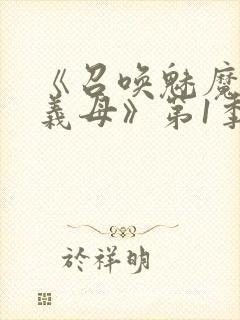 《召喚魅魔
義母》第1季
於祥明